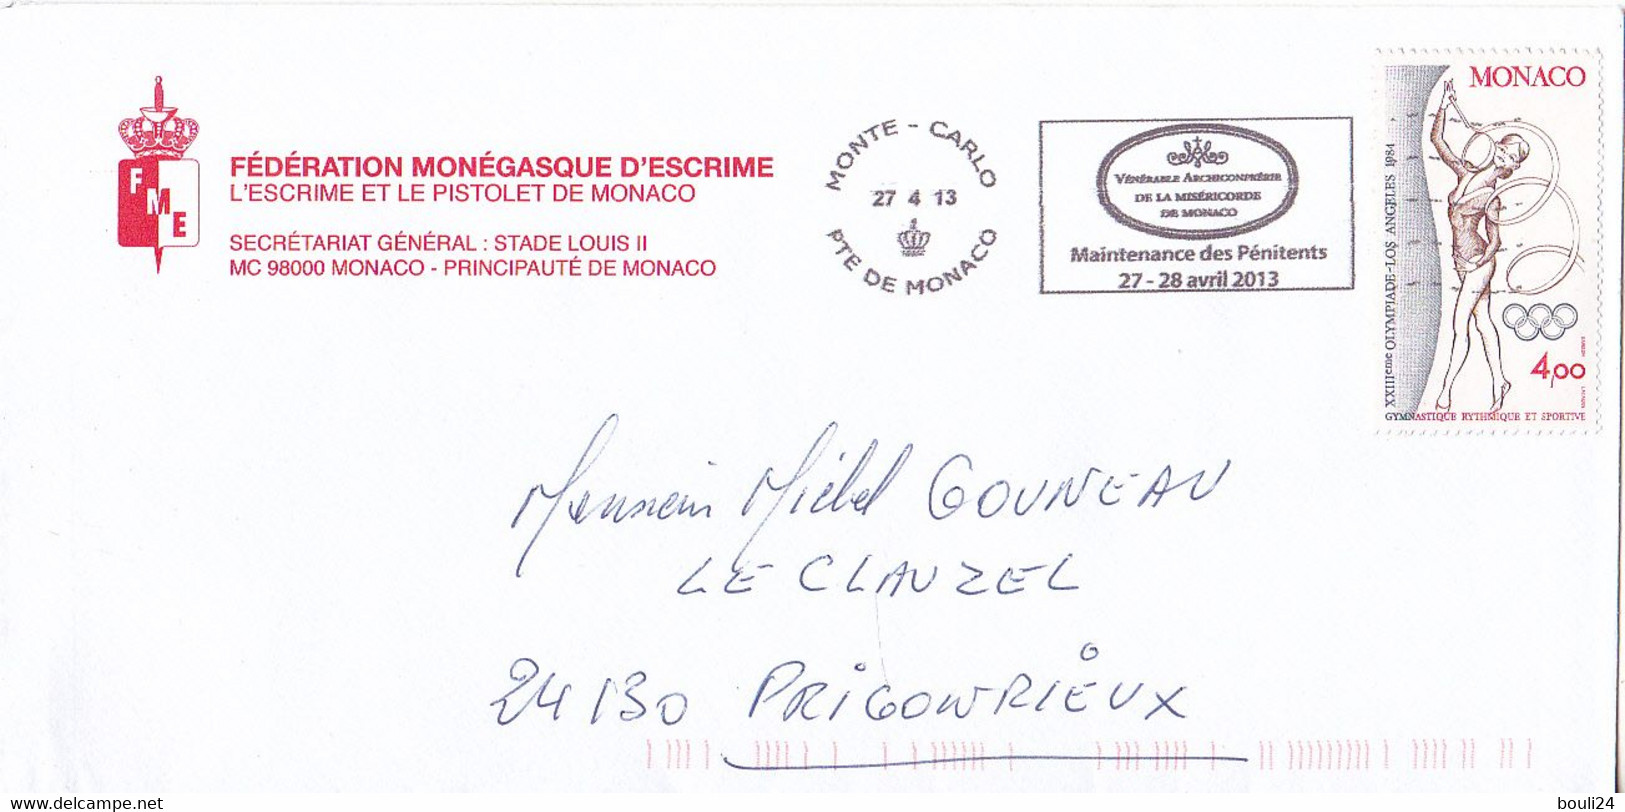 FME
FÉDÉRATION MONÉGASQUE D'ESCRIME
L'ESCRIME ET LE PISTOLET DE MONACO
SECRÉTARIAT GÉNÉRAL : STADE LOUIS II
MC 98000 MONACO - PRINCIPAUTÉ DE MONACO
MONTE - CARLO
27 4 13
PTE DE MONACO
VÉNÉRABLE ARCHICONFRÉRIE
DE LA MISÉRICORDE
DE MONACO
Maintenance des Pénitents
27 - 28 avril 2013
MONACO
XXIIIeme OLYMPIADE-LOS ANGELES 1984
4,00
GYMNASTIQUE RYTHMIQUE ET SPORTIVE
Monsieur Michel GOUNEAU
LE CLAUZEL
24130 PRIGONRIEUX
www.delcampe.net
bouli24